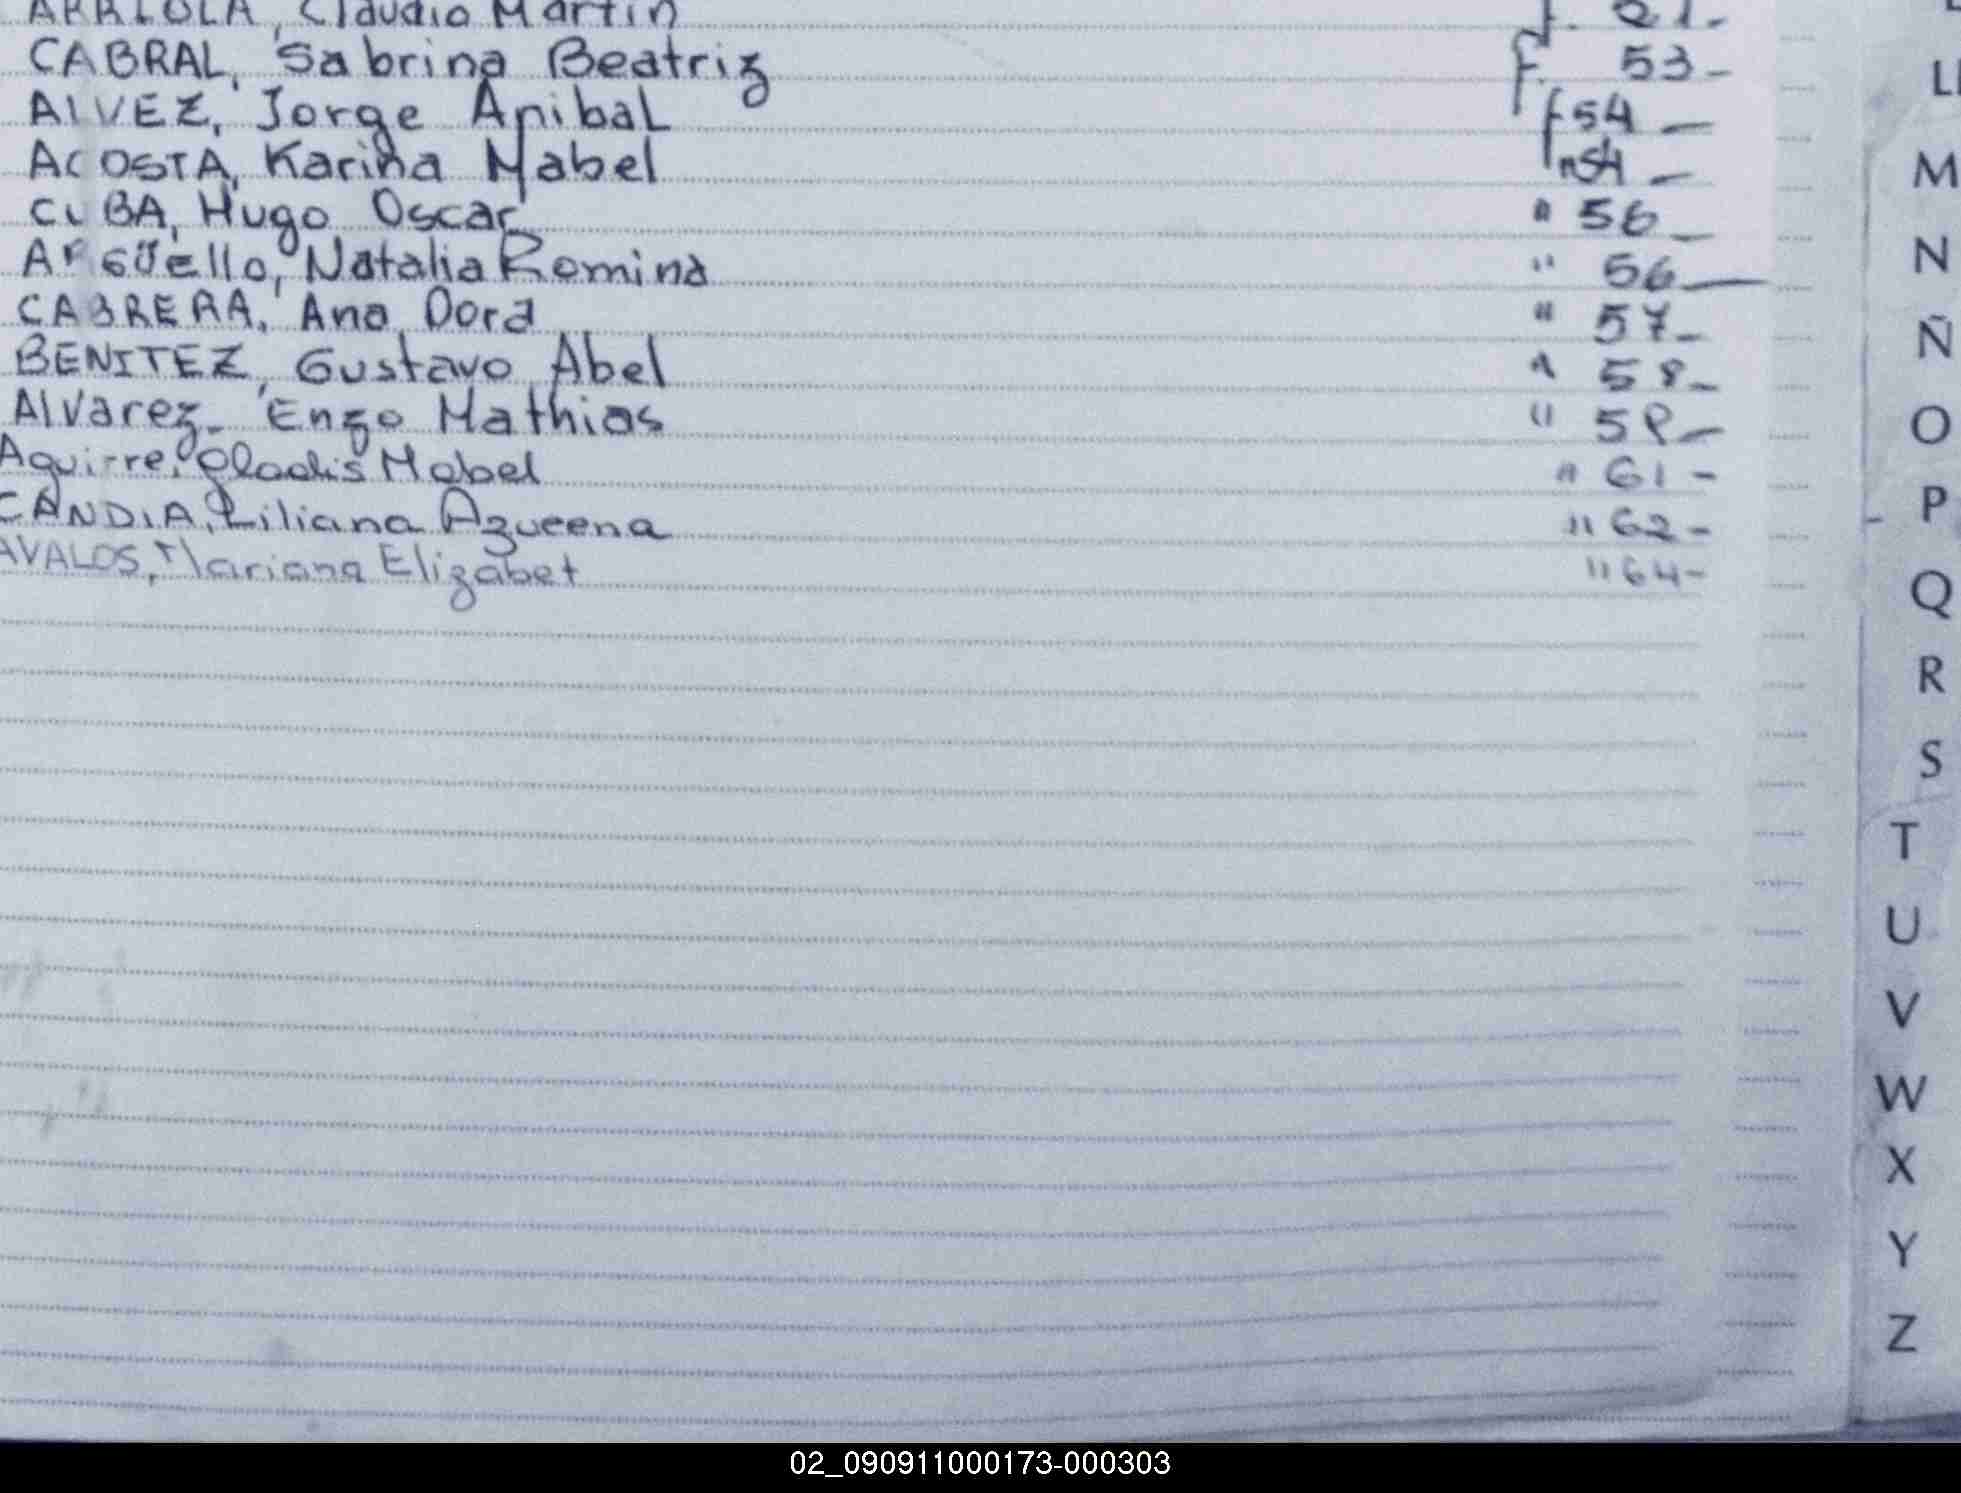 ARRIOLA, Claudio Martin f. 51-
CABRAL, Sabrina Beatriz f. 53-
ALVEZ, Jorge Anibal f 54-
ACOSTA, Karina Mabel " 54-
CUBA, Hugo Oscar " 56-
ARGÜello, Natalia Romina " 56-
CABRERA, Ana Dora " 57-
BENITEZ, Gustavo Abel " 58-
Alvarez- Enzo Mathias " 59-
Aguirre, Gladis Mabel " 61-
CANDIA, Liliana Azucena " 62-
AVALOS, Mariana Elizabet " 64-
LL
M
N
Ñ
O
P
Q
R
S
T
U
V
W
X
Y
Z
02_090911000173-000303